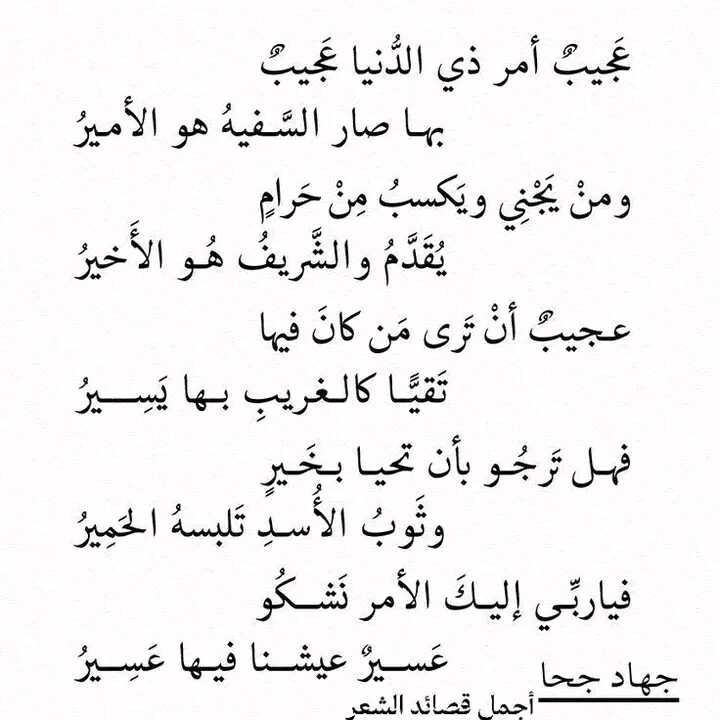 عَجيبٌ أمر ذي الدُّنيا عَجيبٌ
بهـا صار السَّـفيهُ هو الأميرُ
ومنْ يَجْنِي ويَكسبُ مِنْ حَرامٍ
يُقَدَّمُ والشَّريفُ هُـو الأَخيرُ
عـجيبٌ أنْ تَرى مَن كانَ فيها
تَقيًّـا كالـغريبِ بـها يَسِـــيرُ
فهـل تَرجُـو بأن تحيـا بـخَـيرٍ
وثَوبُ الأُسـدِ تَلبسهُ الحَمِيرُ
فياربِّـي إليـكَ الأمر نَشـــكُو
عَســيرٌ عيشـــنا فيـها عَسِـيرُ
جهاد جحا
أجمل قصائد الشعر